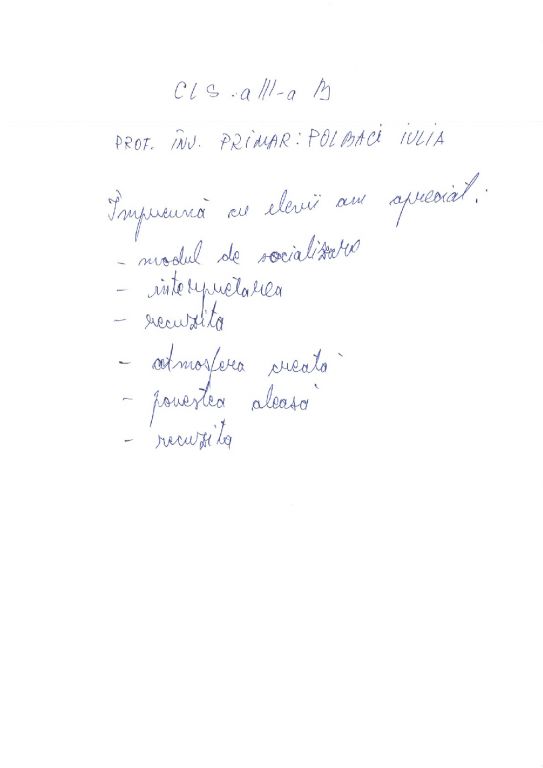 CLS. a III-a B
PROF. ÎNV. PRIMAR: POLBACI IULIA
Împreună cu elevii am apreciat:
- modul de socializare
- interpretarea
- recuzita
- atmosfera creată
- povestea aleasă
- recuzita